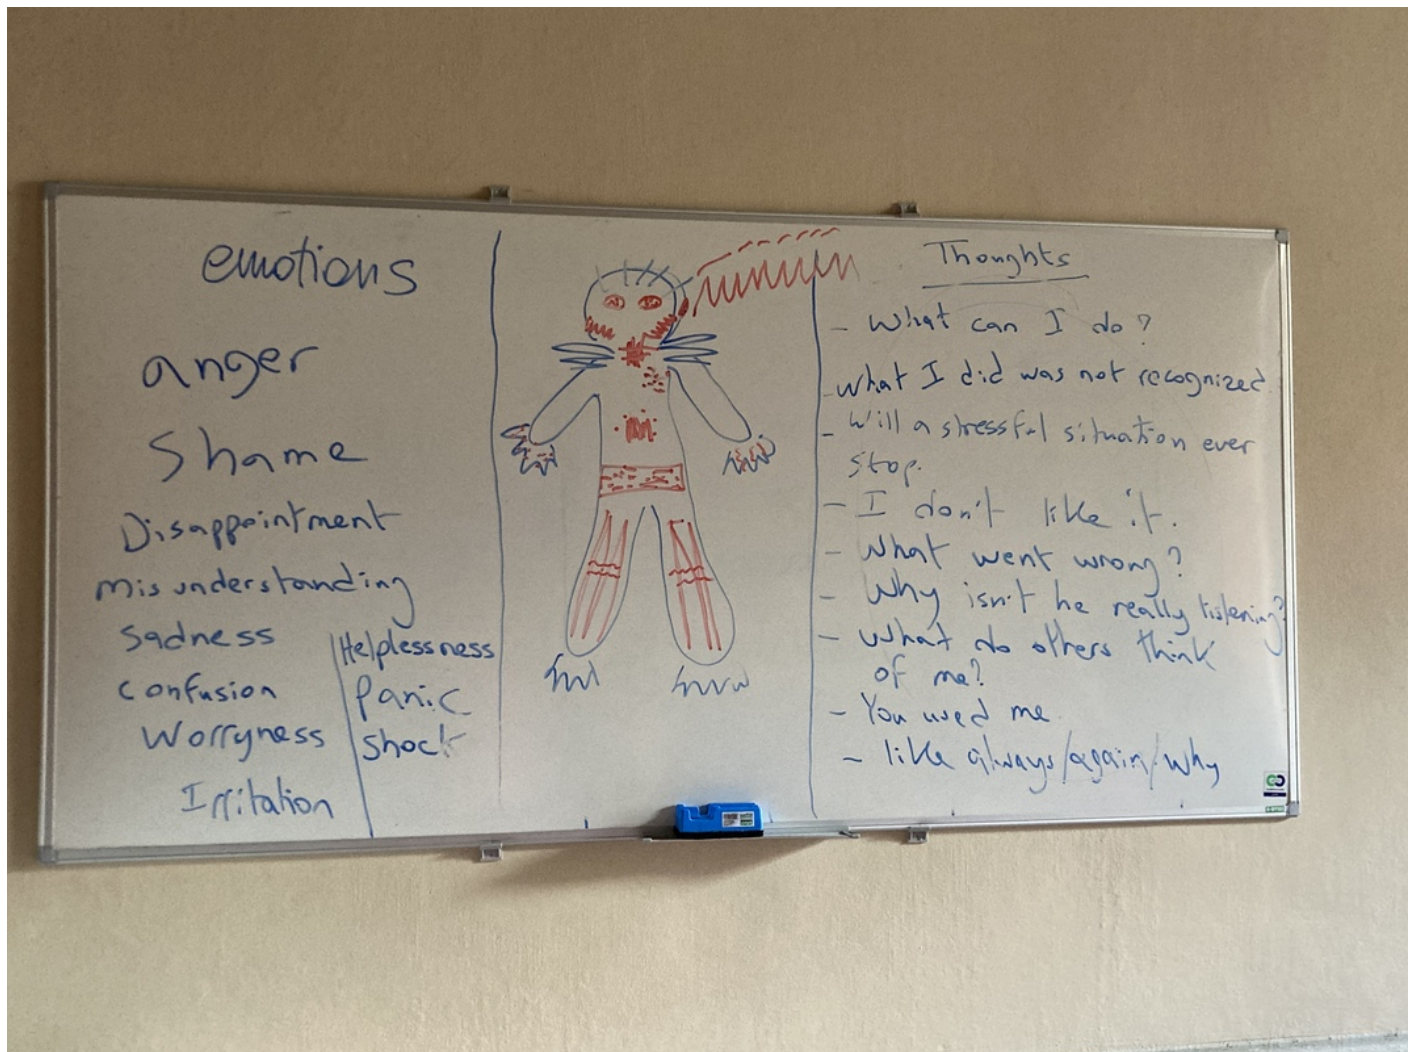 emotions
anger
Shame
Disappointment
misunderstanding
Sadness
confusion
Worryness
Irritation
Helplessness
panic
shock
Thoughts
- What can I do?
- What I did was not recognized
- Will a stressful situation ever
stop.
- I don't like it.
- What went wrong?
- Why isn't he really listening?
- What do others think
of me?
- You used me
- like always/again/why